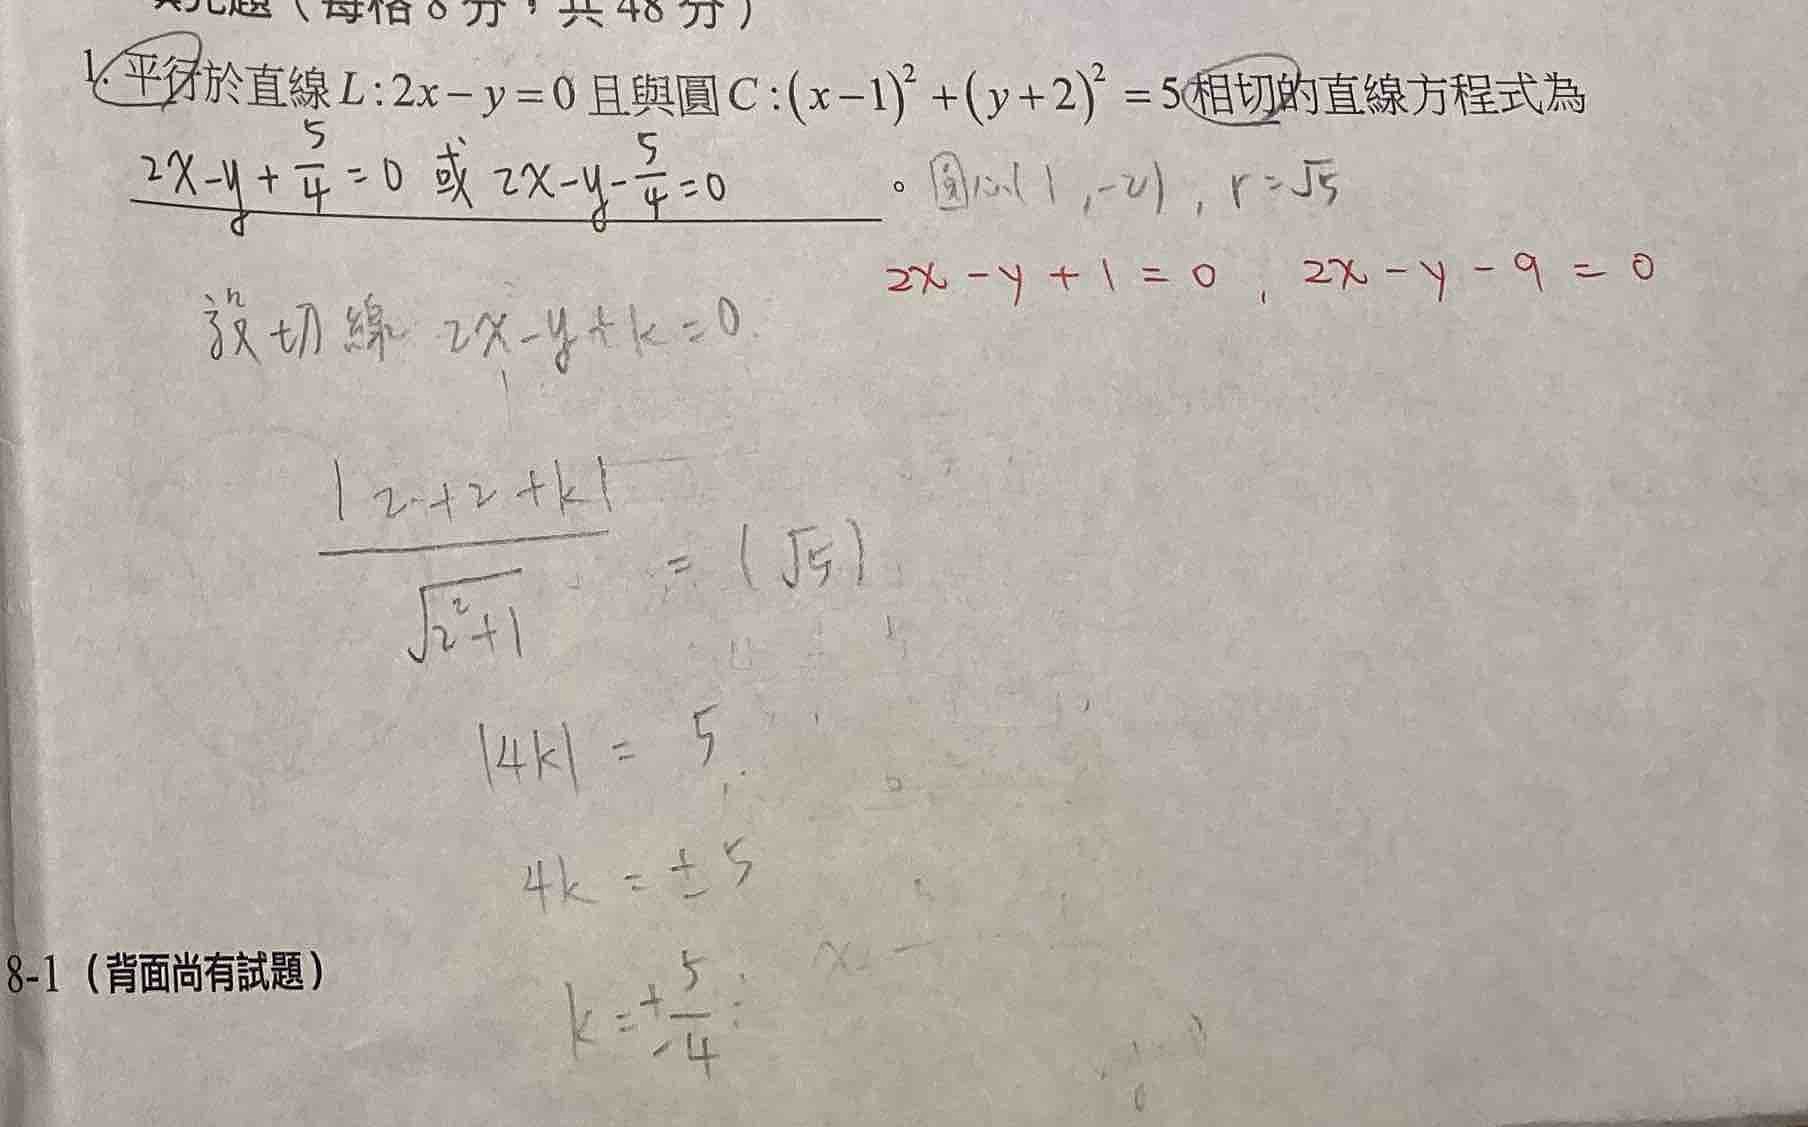 填充題（每格8分，共48分）
1. 平行於直線 L:2x−y=0 且與圓 C:(x−1)²+(y+2)²=5 相切的直線方程式為
2x-y+5/4=0 或 2x-y-5/4=0 。 圓心(1,-2), r=√5
2x-y+1=0, 2x-y-9=0
設切線 2x-y+k=0
|2+2+k|/√(2²+1) = (√5)
|4k| = 5
4k = ±5
k=±5/4
8-1（背面尚有試題）